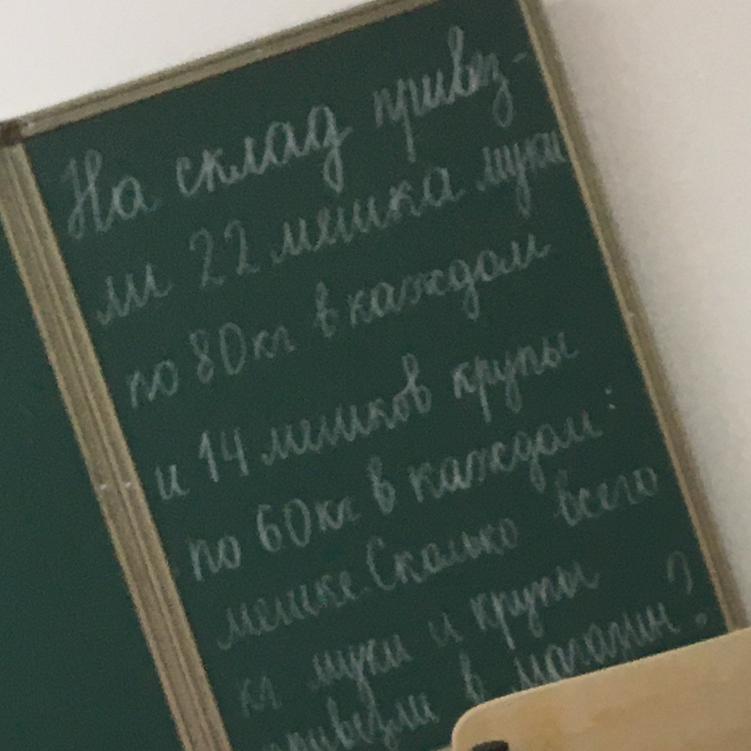 На склад привез-
ли 22 мешка муки
по 80кг в каждом
и 14 мешков крупы
по 60кг в каждом
мешке. Сколько всего
кг муки и крупы
привезли в магазин?